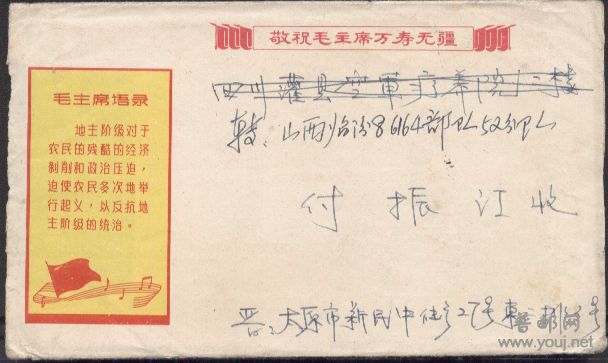 敬祝毛主席万寿无疆
四川灌县空軍疗养院
转：山西临汾86164部队52分队
付振江收
毛主席语录
地主阶级对于
农民的残酷的经济
剥削和政治压迫，
迫使农民多次地举
行起义，以反抗地
主阶级的统治。
晋：太原市新民中街27号
普邮网
www.youj.net